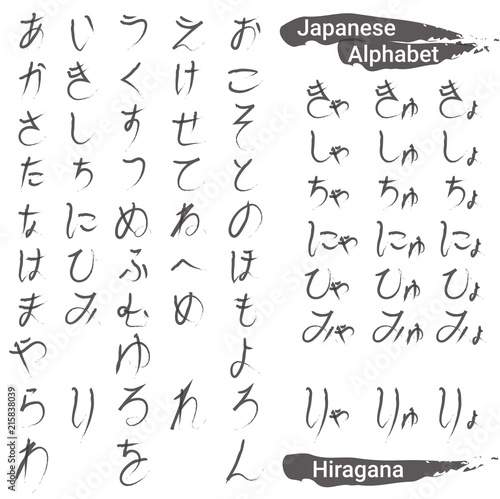 あ い う え お
か き く け こ
さ し す せ そ
た ち つ て と
な に め ね の
は ひ ふ へ ほ
ま み む め も
や ゆ よ
ら り る れ ろ
わ を ん
Japanese
Alphabet
きゃ きゅ きょ
しゃ しゅ しょ
ちゃ ちゅ ちょ
にゃ にゅ にょ
ひゃ ひゅ ひょ
みゃ みゅ みょ
りゃ りゅ りょ
Hiragana
Adobe Stock | #215838039